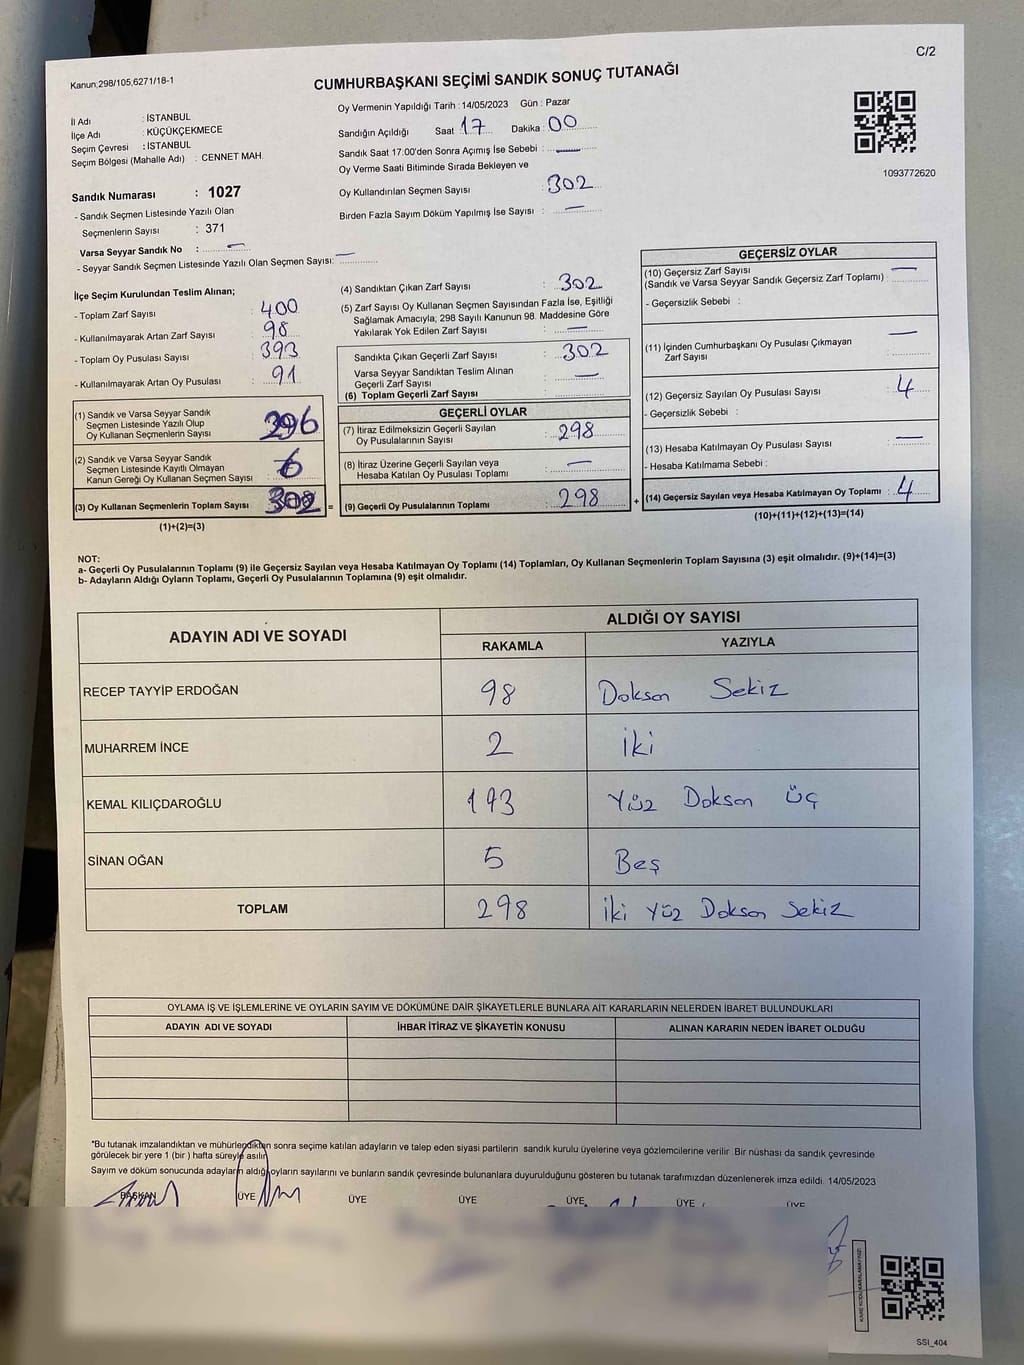 C/2
Kanun:298/105,6271/18-1
CUMHURBAŞKANI SEÇİMİ SANDIK SONUÇ TUTANAĞI
İl Adı : İSTANBUL
İlçe Adı : KÜÇÜKÇEKMECE
Seçim Çevresi : İSTANBUL
Seçim Bölgesi (Mahalle Adı) : CENNET MAH.
Sandık Numarası : 1027
- Sandık Seçmen Listesinde Yazılı Olan
Seçmenlerin Sayısı : 371
Varsa Seyyar Sandık No : —
- Seyyar Sandık Seçmen Listesinde Yazılı Olan Seçmen Sayısı: —
Oy Vermenin Yapıldığı Tarih : 14/05/2023 Gün : Pazar
Sandığın Açıldığı Saat : 17 Dakika : 00
Sandık Saat 17:00'den Sonra Açımış İse Sebebi : —
Oy Verme Saati Bitiminde Sırada Bekleyen ve
Oy Kullandırılan Seçmen Sayısı : 302
Birden Fazla Sayım Döküm Yapılmış İse Sayısı : —
1093772620
İlçe Seçim Kurulundan Teslim Alınan;
- Toplam Zarf Sayısı : 400
- Kullanılmayarak Artan Zarf Sayısı : 98
- Toplam Oy Pusulası Sayısı : 393
- Kullanılmayarak Artan Oy Pusulası : 91
(1) Sandık ve Varsa Seyyar Sandık
Seçmen Listesinde Yazılı Olup
Oy Kullanan Seçmenlerin Sayısı : 296
(2) Sandık ve Varsa Seyyar Sandık
Seçmen Listesinde Kayıtlı Olmayan
Kanun Gereği Oy Kullanan Seçmen Sayısı : 6
(3) Oy Kullanan Seçmenlerin Toplam Sayısı 302 =
(1)+(2)=(3)
(4) Sandıktan Çıkan Zarf Sayısı : 302
(5) Zarf Sayısı Oy Kullanan Seçmen Sayısından Fazla İse, Eşitliği
Sağlamak Amacıyla; 298 Sayılı Kanunun 98. Maddesine Göre
Yakılarak Yok Edilen Zarf Sayısı : —
Sandıkta Çıkan Geçerli Zarf Sayısı : 302
Varsa Seyyar Sandıktan Teslim Alınan
Geçerli Zarf Sayısı : —
(6) Toplam Geçerli Zarf Sayısı
GEÇERLİ OYLAR
(7) İtiraz Edilmeksizin Geçerli Sayılan
Oy Pusulalarının Sayısı : 298
(8) İtiraz Üzerine Geçerli Sayılan veya
Hesaba Katılan Oy Pusulası Toplamı : —
(9) Geçerli Oy Pusulalarının Toplamı : 298 +
GEÇERSİZ OYLAR
(10) Geçersiz Zarf Sayısı —
(Sandık ve Varsa Seyyar Sandık Geçersiz Zarf Toplamı) :
- Geçersizlik Sebebi :
(11) İçinden Cumhurbaşkanı Oy Pusulası Çıkmayan —
Zarf Sayısı :
(12) Geçersiz Sayılan Oy Pusulası Sayısı : 4
- Geçersizlik Sebebi :
(13) Hesaba Katılmayan Oy Pusulası Sayısı : —
- Hesaba Katılmama Sebebi :
(14) Geçersiz Sayılan veya Hesaba Katılmayan Oy Toplamı : 4
(10)+(11)+(12)+(13)=(14)
NOT:
a- Geçerli Oy Pusulalarının Toplamı (9) ile Geçersiz Sayılan veya Hesaba Katılmayan Oy Toplamı (14) Toplamları, Oy Kullanan Seçmenlerin Toplam Sayısına (3) eşit olmalıdır. (9)+(14)=(3)
b- Adayların Aldığı Oyların Toplamı, Geçerli Oy Pusulalarının Toplamına (9) eşit olmalıdır.
ADAYIN ADI VE SOYADI ALDIĞI OY SAYISI
RAKAMLA YAZIYLA
RECEP TAYYİP ERDOĞAN 98 Doksan Sekiz
MUHARREM İNCE 2 İki
KEMAL KILIÇDAROĞLU 193 Yüz Doksan Üç
SİNAN OĞAN 5 Beş
TOPLAM 298 İki Yüz Doksan Sekiz
OYLAMA İŞ VE İŞLEMLERİNE VE OYLARIN SAYIM VE DÖKÜMÜNE DAİR ŞİKAYETLERLE BUNLARA AİT KARARLARIN NELERDEN İBARET BULUNDUKLARI
ADAYIN ADI VE SOYADI İHBAR İTİRAZ VE ŞİKAYETİN KONUSU ALINAN KARARIN NEDEN İBARET OLDUĞU
*Bu tutanak imzalandıktan ve mühürlendikten sonra seçime katılan adayların ve talep eden siyasi partilerin sandık kurulu üyelerine veya gözlemcilerine verilir. Bir nüshası da sandık çevresinde
görülecek bir yere 1 (bir ) hafta süreyle asılır.
Sayım ve döküm sonucunda adayların aldığı oyların sayılarını ve bunların sandık çevresinde bulunanlara duyurulduğunu gösteren bu tutanak tarafımızdan düzenlenerek imza edildi. 14/05/2023
BAŞKAN ÜYE ÜYE ÜYE ÜYE ÜYE ÜYE
SSI_404